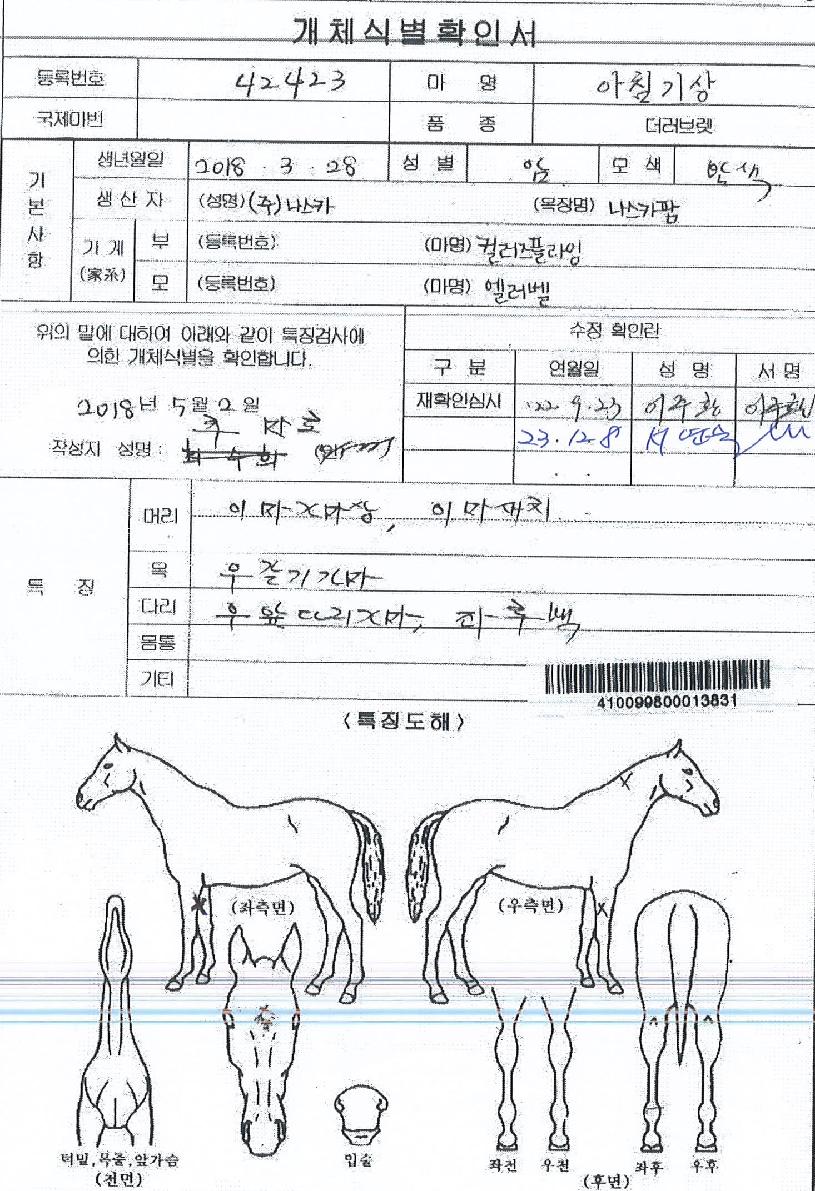 개체식별확인서
등록번호 42423 마 명 아침기상
국제마번 품 종 더러브렛
기본사항
생년월일 2018 . 3 . 28 성 별 암 모 색
생 산 자 (성명) (주)나스카 (목장명) 나스카팜
기 계 (家系) 부 (등록번호) (마명) 컬러즈플라잉
모 (등록번호) (마명) 엘러벨
위의 말에 대하여 아래와 같이 특징검사에
의한 개체식별을 확인합니다.
2018년 5월 2일
작성자 성명 :
수정 확인란
구 분 연월일 성 명 서 명
재확인심사 '22. 9. 23
23. 12. 8
특 징
머리 이마가마상,
목 우 갈기가마
다리 우 앞다리가마, 좌후백
몸통
기타
410099800013831
<특징도해>
(좌측면) (우측면)
턱밑,목줄,앞가슴
(전면)
입술
좌전 우전 좌후 우후
(후면)